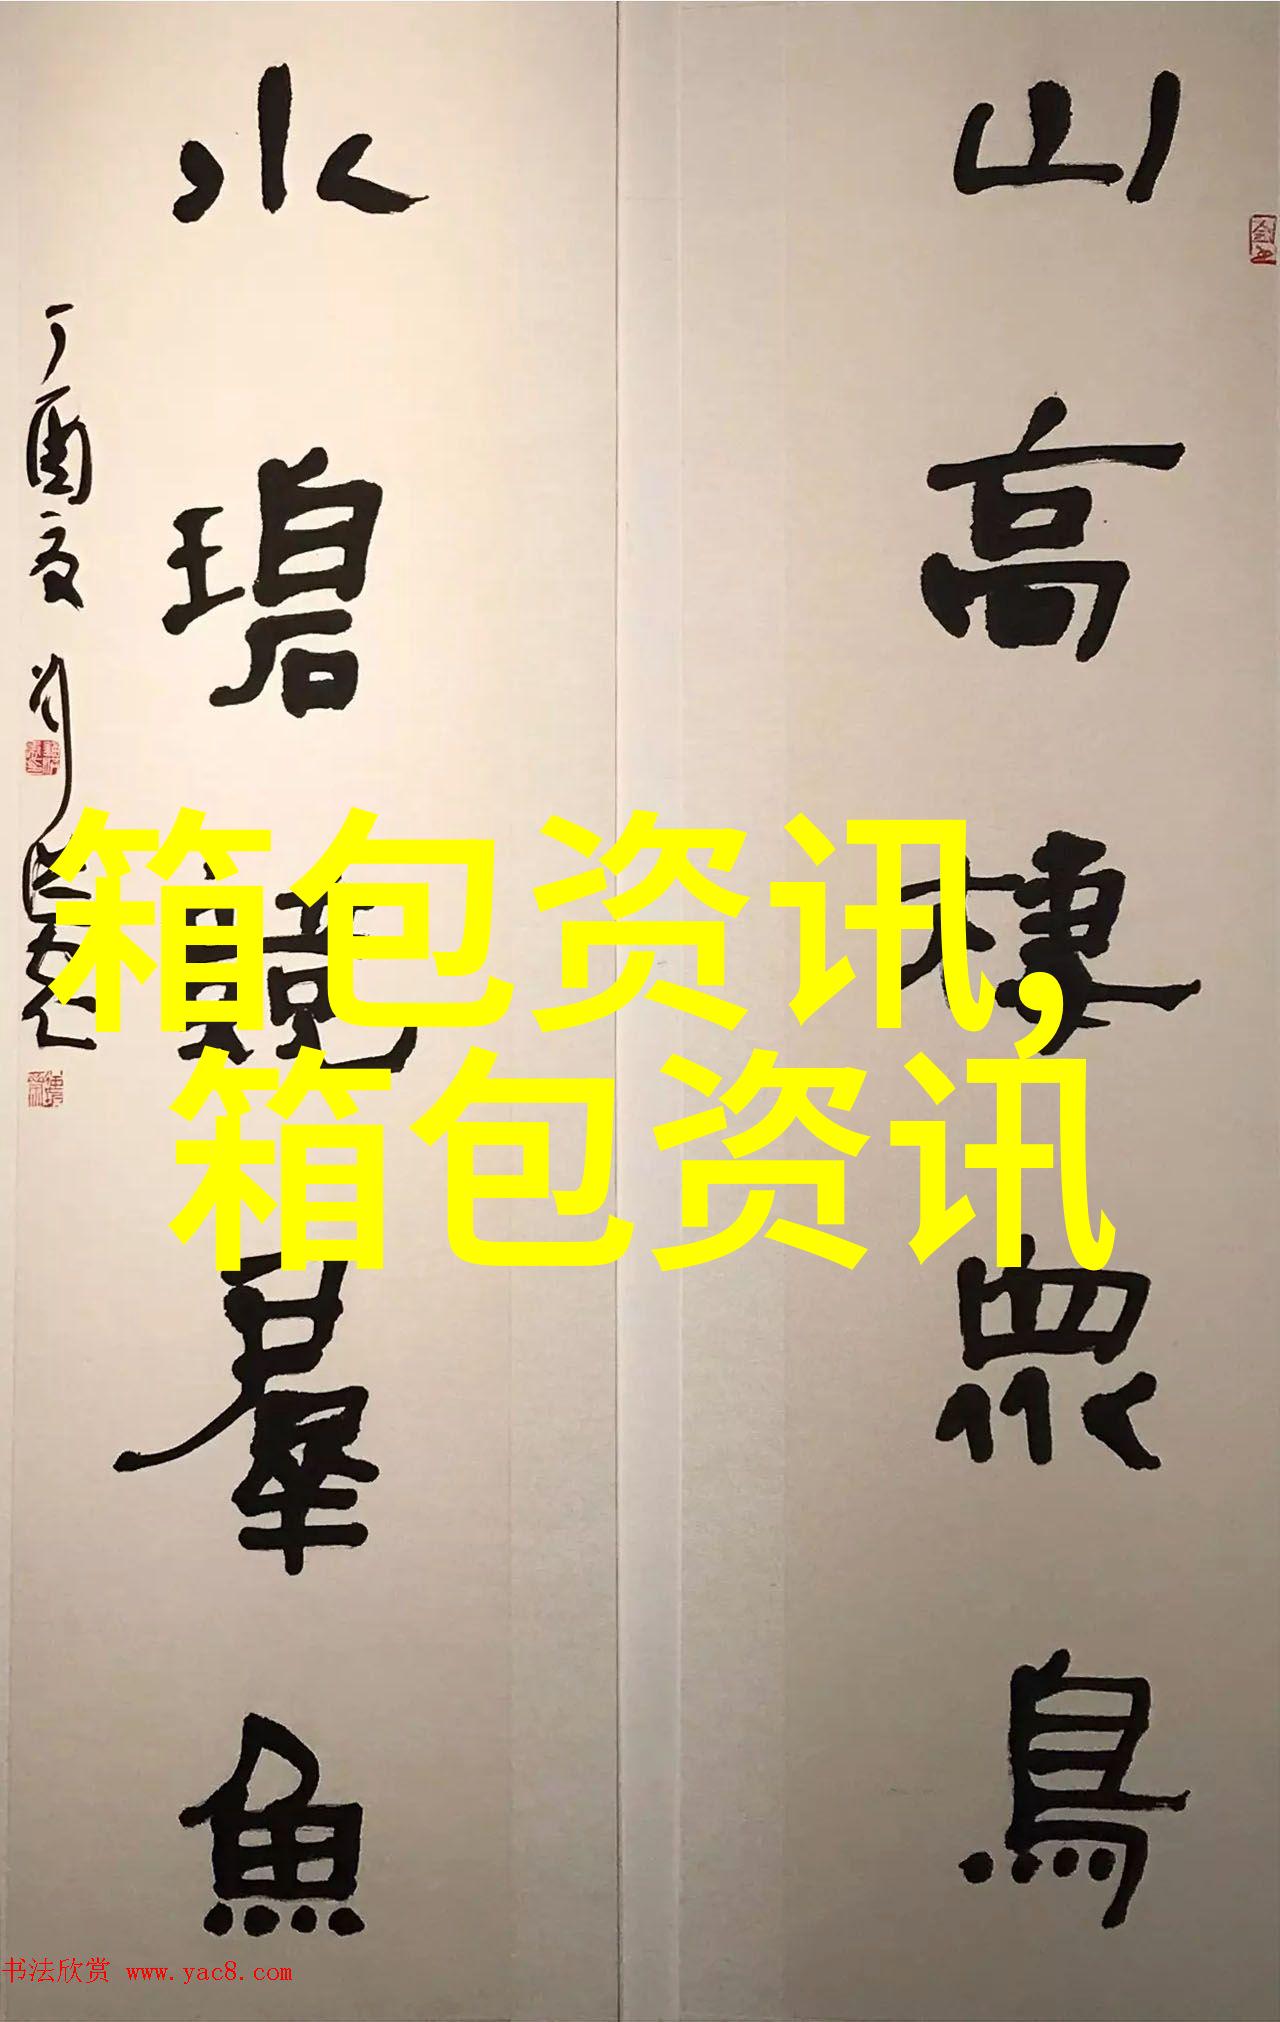 山高棲眾鳥
水碧競羣魚
丁酉夏
箱包资讯,
箱包资讯
书法欣赏 www.yac8.com